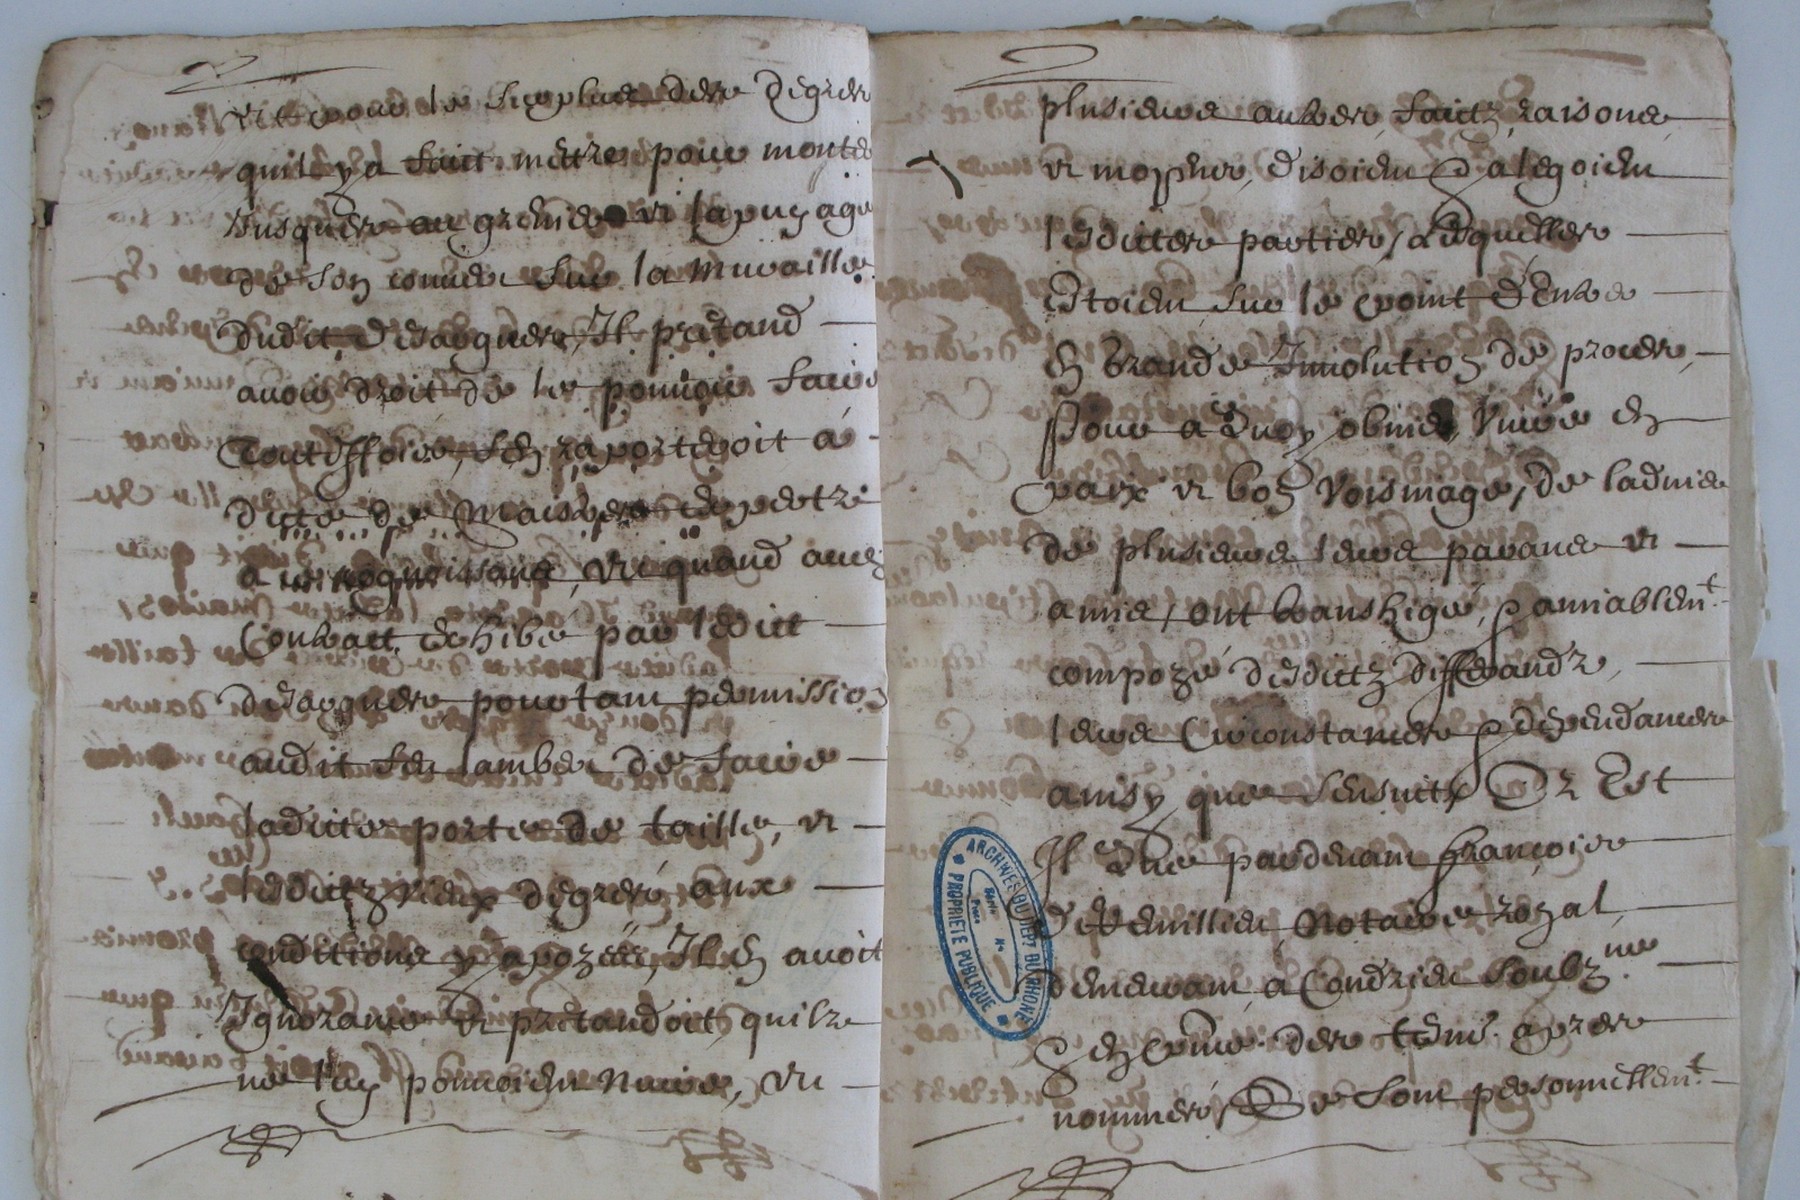 et pour le surplus des degrez
quil y a faict mettre pour monter
Jusques au grenier et lapuyage
de son couvert sur la muraille
dudit desargues, Il pretand
avoir droit de le pouvoir faire
Touteffois, sen raporteroit a
dicte de Maistres expertz
a ce cognoissans, et quand au
Contract exhibé par ledict
desargues portant permission
audit feu lambert de faire
ladicte porte de taille, et
lesdictz vieux degrez aux
conditions y apozees, Il en avoit
Ignorance et pretandoit quilz
ne luy pouvoient nuire, et
plusieurs autres faictz, raisons
et moyens, disoient & alegoient
lesdictes parties, Lesquelles
estoient sur le point dentrer
en grande Involution de proces,
Pour a quoy obvier, vivre en
paix et bon voisinage, de ladvis
de plusieurs leurs parans et
amis, ont transhigé, & amiablemt
compozé desdictz differandz,
leurs Circonstances & dependances
ainsy que sensuict, Or Est
Il que pardevant françois
notaire royal
demeurant a Condrieu soubzne
& en pnce des tesms apres
nommés, Se sont personnellemt
ARCHIVES DU DEPT DU RHONE
PROPRIETE PUBLIQUE